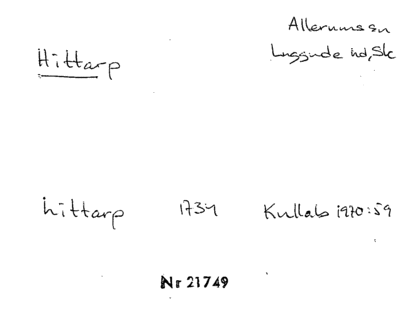 Allerums sn
Hittarp
Luggude hd, Sk
hittarp 1734 Kullab 1970:59
Nr 21749